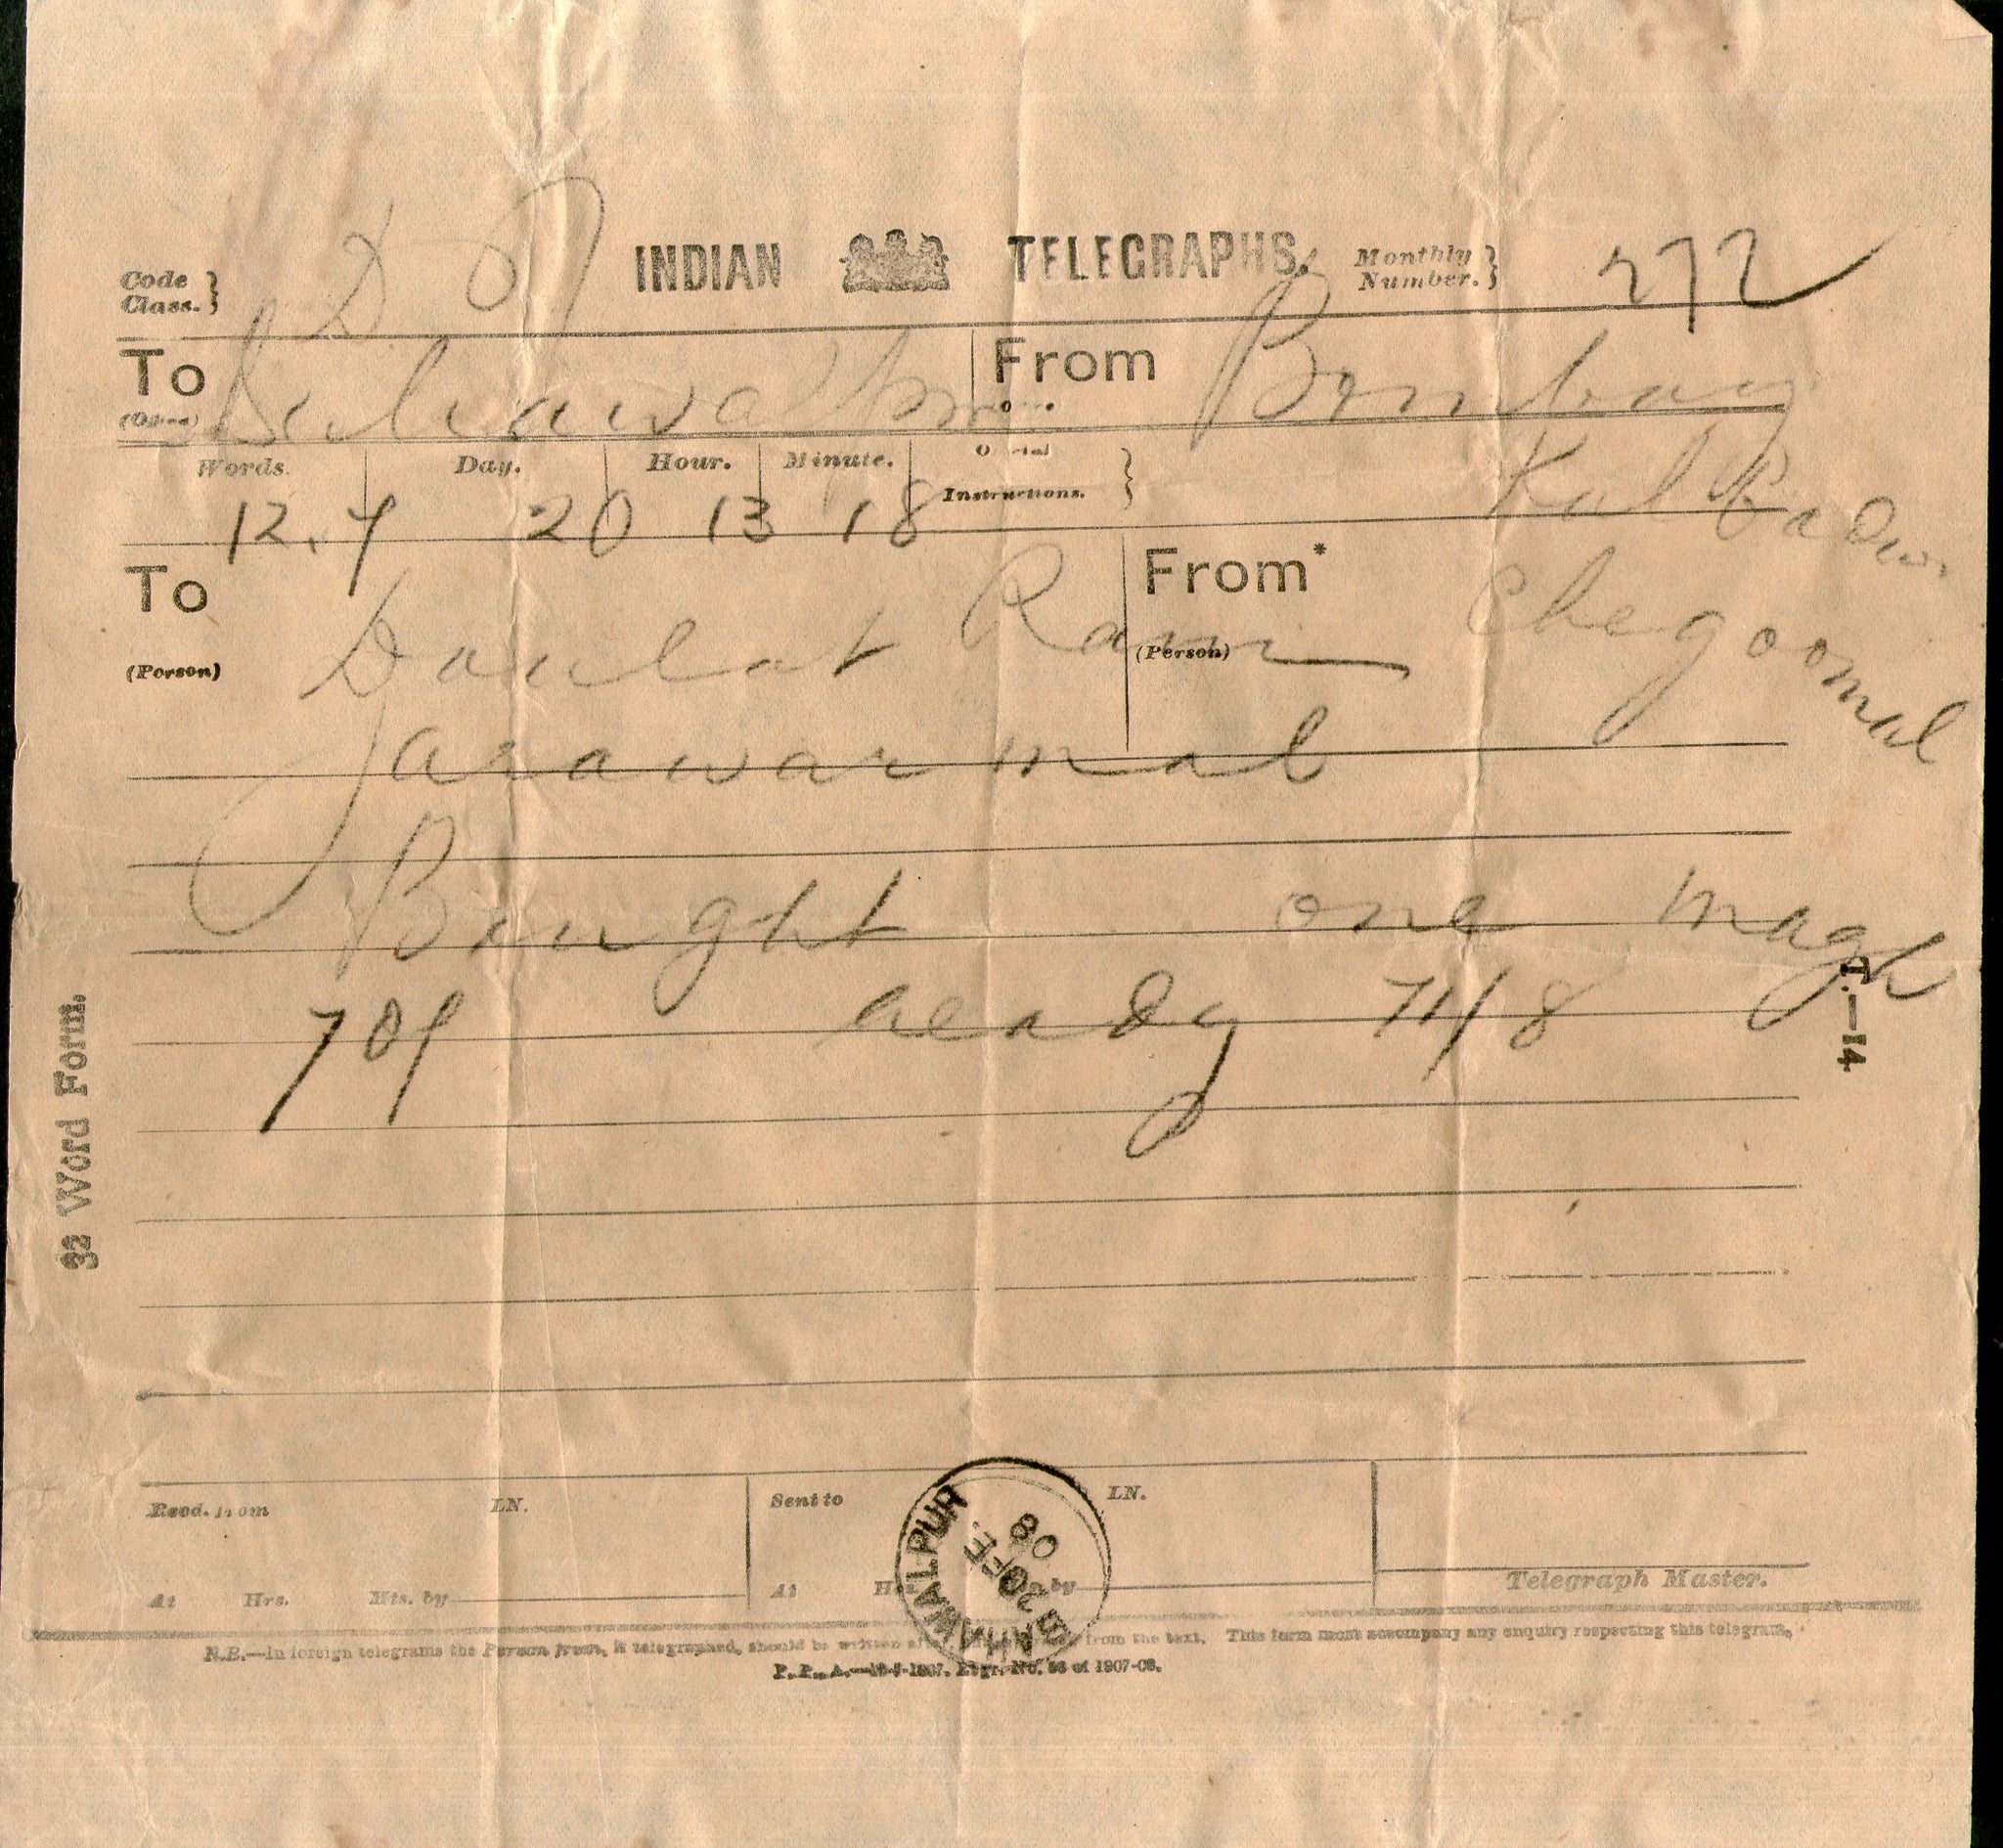 Code Class. } D INDIAN TELEGRAPHS. Monthly Number. } 272
To (Office) From Bombay
Words. Day. Hour. Minute. Instructions. } Kalbadevi
12. 20 13 18
To (Person) Daulat Ram From* (Person) Chegoomal
Jarawarmal
Bought one magh
709 ready 711/8
T.—14.
32 Word Form.
Recd. from LN. Sent to LN.
At Hrs. Mts. by At Hrs. by Telegraph Master.
BAHAWALPUR
20 FE.
08
N.B.—In foreign telegrams the Person from, is telegraphed, should be written from the text. This form must accompany any enquiry respecting this telegram.
of 1907-08.